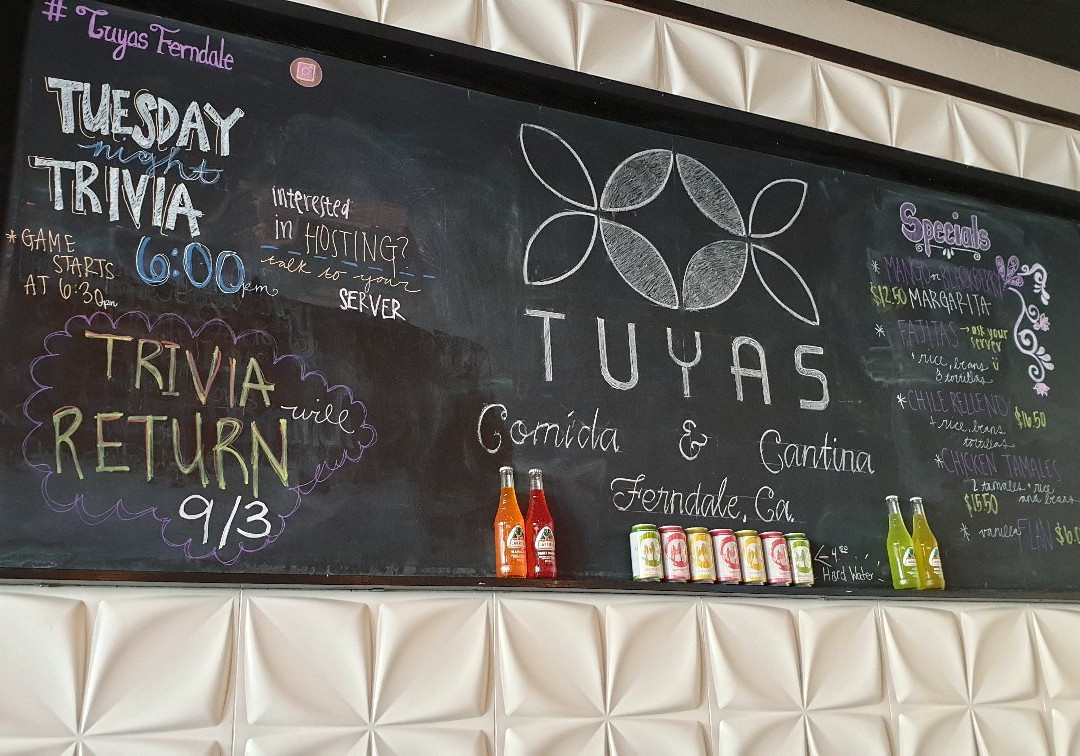 # Tuyas Ferndale
TUESDAY
night
TRIVIA
6:00pm
* GAME
STARTS
AT 6:30pm
interested
in HOSTING?
talk to your
SERVER
TRIVIA
will
RETURN
9/3
TUYAS
Comida & Cantina
Ferndale, Ca.
< 4.00
Hard Water
Specials
* MANGO or
$12.50 MARGARITA
* FAJITAS → ask your
server
+ rice, beans
& tortillas
* CHILE RELLENO
$16.50
+ rice, beans
tortillas
* CHICKEN TAMALES
2 tamales + rice
and beans
$15.50
* vanilla FLAN